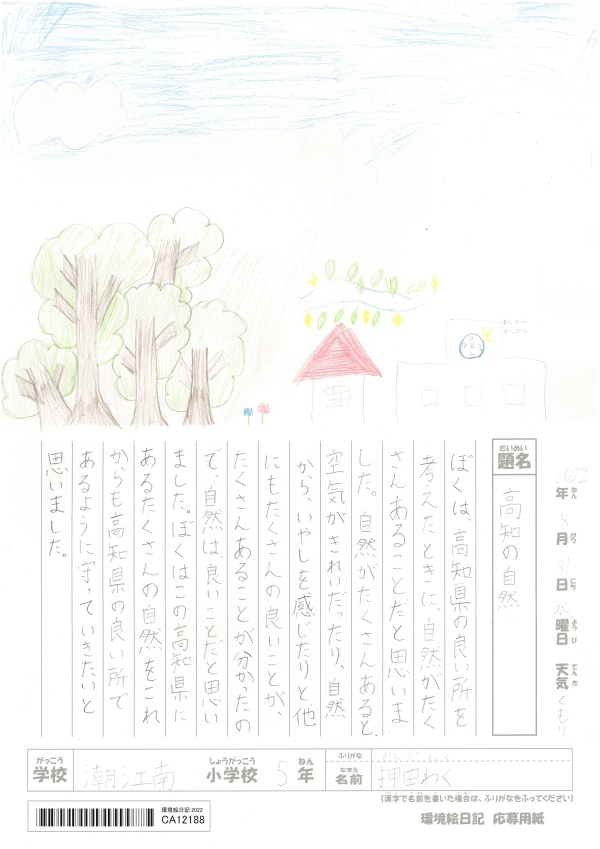 2022年ねん8月がつ31日にち水曜日ようび天気てんきくもり
題名だいめい
高知の自然
ぼくは、高知県の良い所を
考えたときに、自然がたく
さんあることだと思いま
した。自然がたくさんあると、
空気がきれいだったり、自然
から、いやしを感じたりと他
にもたくさんの良いことが、
たくさんあることが分かったの
で、自然は良いことだと思い
ました。ぼくはこの高知県に
あるたくさんの自然をこれ
からも高知県の良い所で
あるように守っていきたいと
思いました。
がっこう しょうがっこう ねん ふりがな
学校 潮江南 小学校 5年 名前 なまえ 押田わく
(漢字で名前を書いた場合は、ふりがなをふってください)
環境絵日記 2022
CA12188
環境絵日記 応募用紙